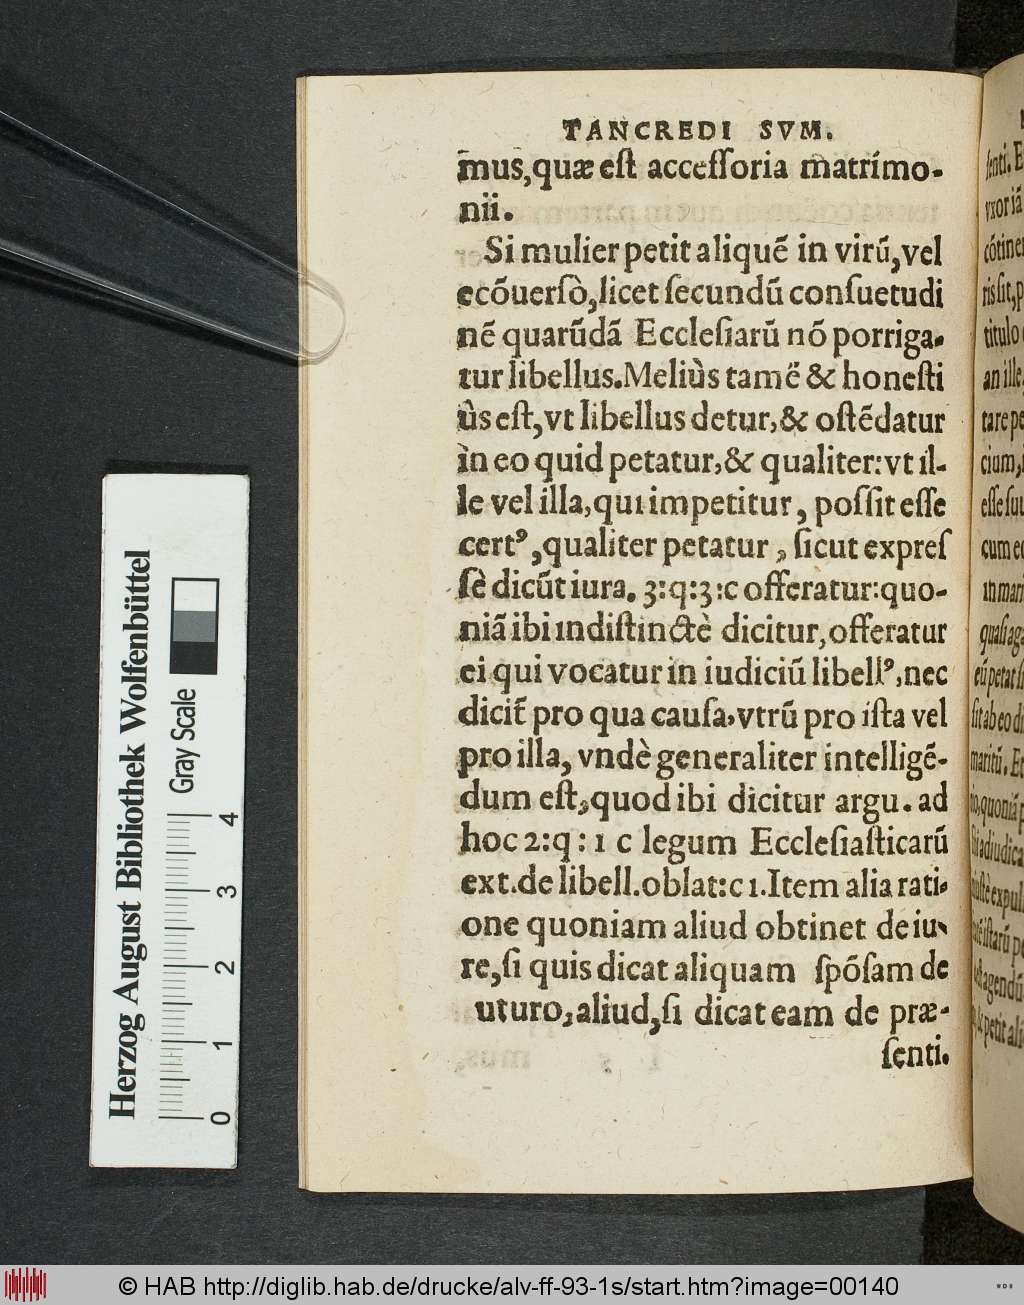 TANCREDI SVM.
mus,quæ eſt acceſſoria matrimo-
nii.
Si mulier petit aliquẽ in virũ,vel
ecõuerſò,licet ſecundũ conſuetudi
nẽ quarũdã Eccleſiarũ nõ porriga-
tur libellus.Meliùs tamẽ & honeſti
ùs eſt,vt libellus detur,& oſtẽdatur
in eo quid petatur,& qualiter:vt il-
le vel illa,qui impetitur, poſſit eſſe
certꝰ,qualiter petatur, ſicut expreſ
ſè dicũt iura. 3:q:3:c offeratur:quo-
niã ibi indiſtinctè dicitur,offeratur
ei qui vocatur in iudiciũ libellꝰ,nec
dicit̃ pro qua cauſa,vtrũ pro iſta vel
pro illa, vndè generaliter intelligẽ-
dum eſt,quod ibi dicitur argu. ad
hoc 2:q: 1 c legum Eccleſiaſticarũ
ext.de libell.oblat:c 1.Item alia rati-
one quoniam aliud obtinet de iu-
re,ſi quis dicat aliquam ſpõſam de
uturo,aliud,ſi dicat eam de præ-
ſenti.
ſenti. E
vxor iã
cõtine
ris ſit,p
titulo
an ille
tare pe
cium,
eſſe ſu
cum eo
in mari
quaſi ag
eũ petat ſ
ſit ab eo d
maritũ. E
quoniã
adiudica
expul
iſtarũ
agendũ
petit ali
Herzog August Bibliothek Wolfenbüttel
Gray Scale
0 1 2 3 4
© HAB http://diglib.hab.de/drucke/alv-ff-93-1s/start.htm?image=00140